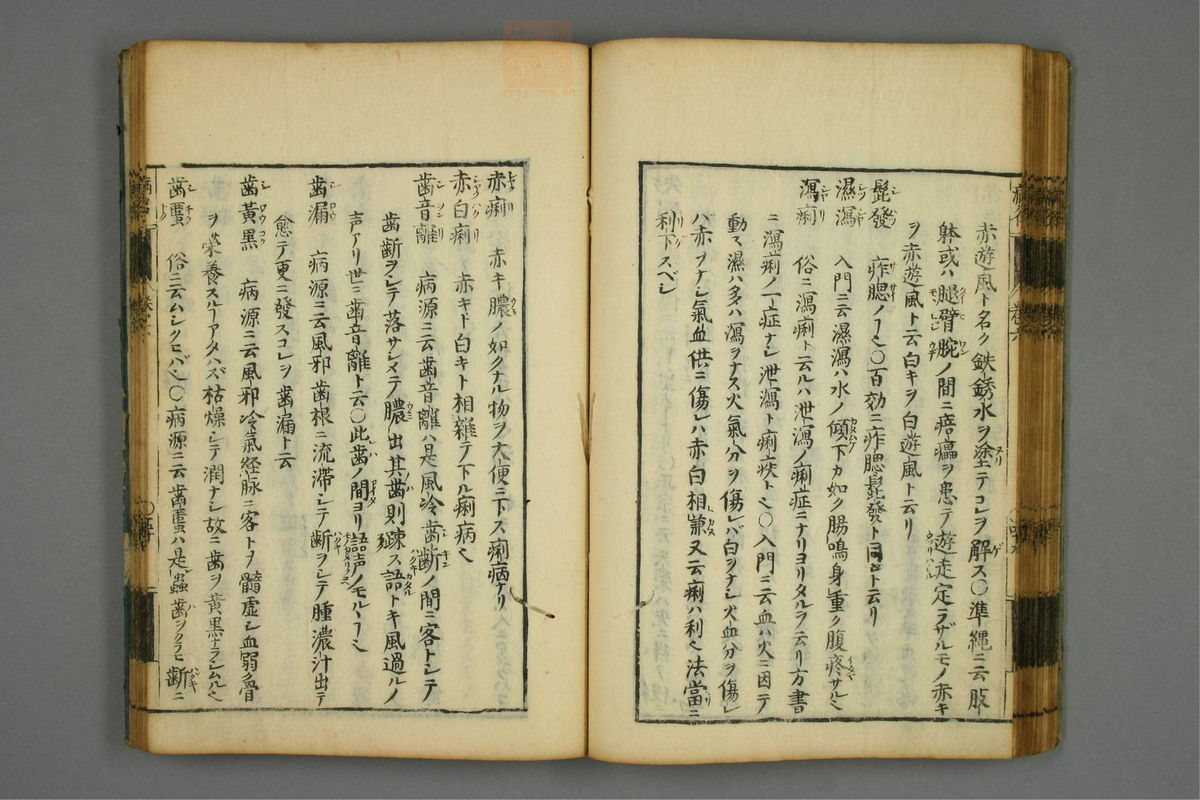 赤遊風ト名ク鉄銹水ヲ塗テコレヲ解ス〇準縄ニ云
躰或ハ腿臂腕ノ間ニ瘖㿔ヲ患テ遊走定ラザルモノ赤キ
ヲ赤遊風ト云白キヲ白遊風ト云リ
髭發 痄腮ノ〇百効ニ痄腮髭發ト同ト云リ
濕瀉 入門ニ云濕瀉ハ水ノ傾下カ如ク腸鳴身重ク腹疼サル
瀉痢 俗ニ瀉痢ト云ルハ泄瀉ノ痢症ニナリヨリタルヲ云リ方書
ニ瀉痢ノ一症ナシ泄瀉ト痢疾ト〇入門ニ云血ハ火ニ因テ
動ス濕ハ多ハ瀉ヲナス火氣分ヲ傷レバ白ヲナシ火血分ヲ傷レ
ハ赤ヲナシ氣血俱ニ傷レハ赤白相兼又云痢ハ利法當ニ
利下スベシ
赤痢 赤キ膿ノ如クナル物ヲ大便ニ下ス痢病ナリ
赤白痢 赤キト白キト相雜テ下ル痢病
歯音離 病源ニ云歯音離ハ是風冷歯齗ノ間ニ客トシテ
歯齗ヲシテ落サシメテ膿出其歯則疎ス語トキ風過ルノ
声アリ世ニ歯音離ト云〇此歯ノ間ヨリ語声ノモル
歯漏 病源ニ云風邪歯根ニ流滞シテ齗ヲシテ腫濃汁出テ
愈テ更ニ發スコレヲ歯漏ト云
歯黃黑 病源ニ云風邪冷氣経脉ニ客トヲ髓虚シ血弱ク骨
ヲ荣養スルアタハズ枯燥シテ潤ナシ故ニ歯ヲ黃黑ナラシムル
歯䘌 俗ニ云ムシクヒバ〇病源ニ云歯䘌ハ是蟲歯ヲクラヒ齗ニ